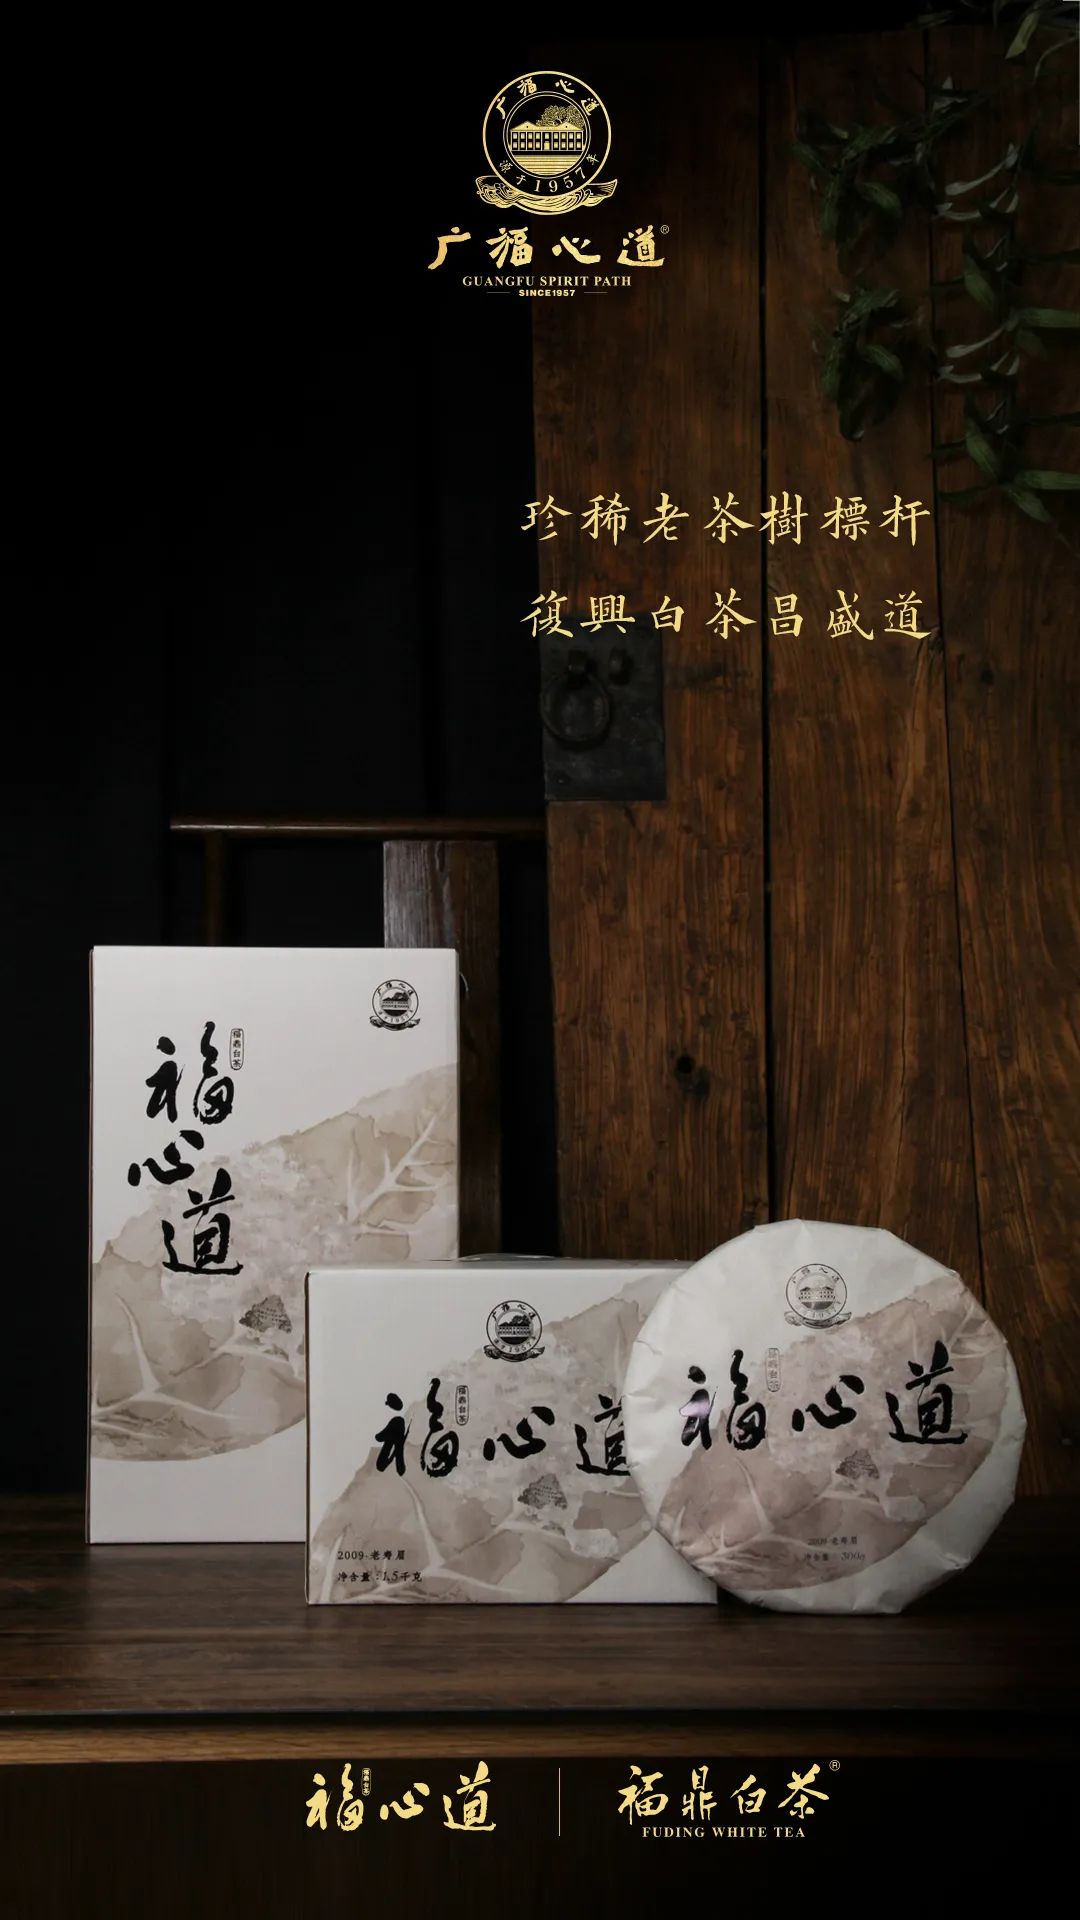 广福心道
源于1957年
广福心道®
GUANGFU SPIRIT PATH
SINCE1957
珍稀老茶樹標杆
復興白茶昌盛道
广福心道
源于1957年
福鼎白茶
福心道
广福心道
源于1957年
福鼎白茶
福心道
2009·老寿眉
净含量:1.5千克
广福心道
源于1957年
福鼎白茶
福心道
2009·老寿眉
净含量:300g
福心道
福鼎白茶
福鼎白茶®
FUDING WHITE TEA